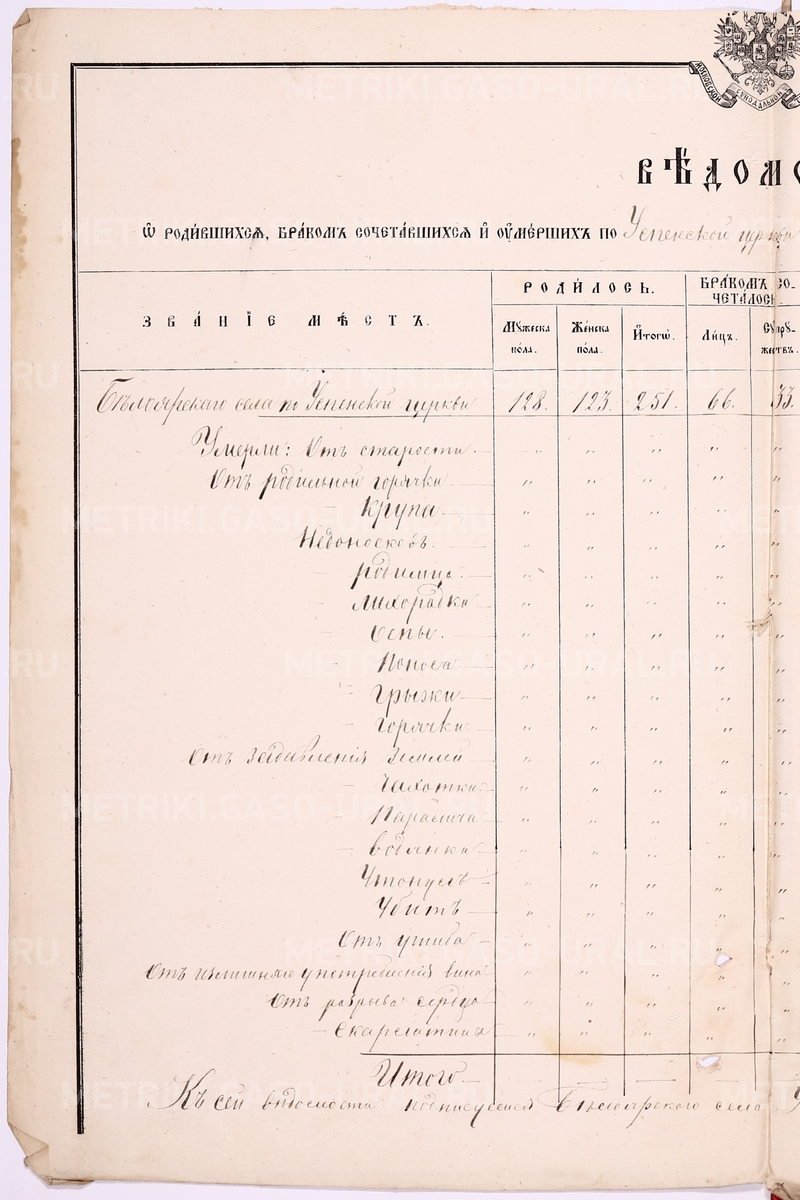 МОСКОВСКОЙ СѴНОДАЛЬНОЙ
ВѢДОМО
Ѡ РОДИ́ВШИХСѦ, БРА́КОМЪ СОЧЕТА́ВШИХСѦ И҆ ОУ҆МЕ́РШИХЪ ПО Успенской церкви
РОДИ́ЛОСЬ. БРА́КОМЪ СО-
ЧЕТА́ЛОСЬ.
ЗВА́НІЕ МѢ́СТЪ. Мꙋ́жеска по́ла. Же́нска по́ла. И҆тогѡ̀. Ли́цъ. Сꙋпрꙋ́-
жествъ.
Бѣлоярскаго села по Успенской церкви 128. 123. 251. 66. 33.
Умерли: Отъ старости - „ „ „ „ „
Отъ родильной горячки „ „ „ „ „
- Крупа „ „ „ „ „
Недоносковъ. „ „ „ „ „
- родимца. „ „ „ „ „
- лихорадки „ „ „ „ „
Оспы. „ „ „ „ „
- Поноса „ „ „ „ „
- Грыжи „ „ „ „ „
- Горячки „ „ „ „ „
Отъ задавленія землей „ „ „ „ „
- Чахотки „ „ „ „ „
- Паралича „ „ „ „ „
- Водянки „ „ „ „ „
Утонулъ „ „ „ „ „
Убитъ „ „ „ „ „
Отъ ушиба „ „ „ „ „
Отъ излишняго употребленія вина „ „ „ „ „
Отъ разрыва сердца „ „ „ „ „
- Скарлатина „ „ „ „ „
Итого - — — —
Къ сей вѣдомости подписуемся Бѣлоярского села
METRIKI.GASO-URAL.RU